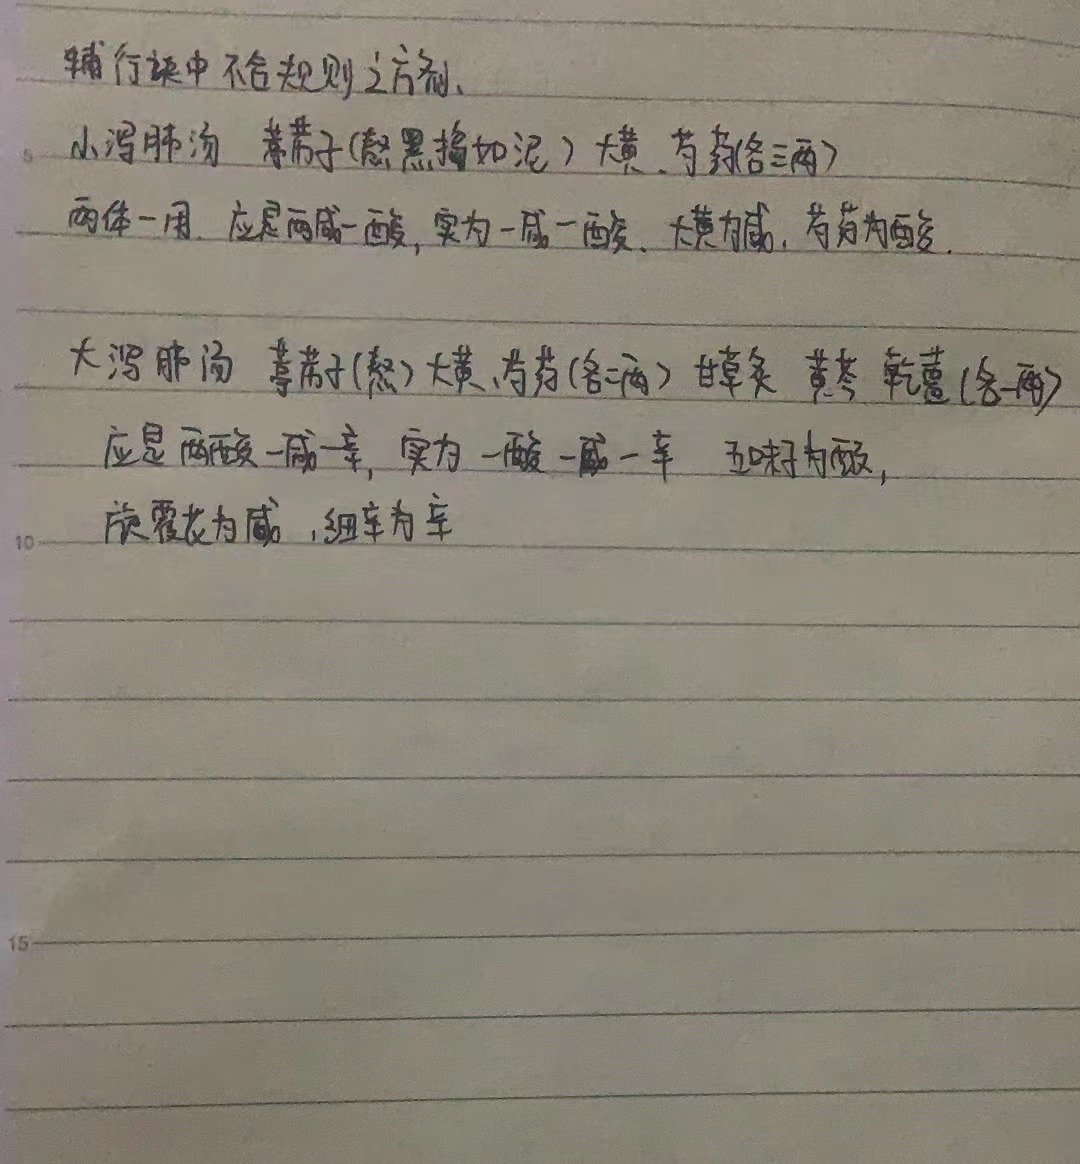 辅行诀中不合规则之方剂、
5 小泻肺汤 葶苈子(熬黑捣如泥)大黄、芍药(各三两)
两体一用 应是两咸一酸,实为一咸一酸、大黄为咸,芍药为酸.
大泻肺汤 葶苈子(熬)大黄、芍药(各三两)甘草炙 黄芩 乾薑(各一两)
应是 两酸一咸一辛,实为一酸一咸一辛 五味子为酸,
旋覆花为咸,细辛为辛
10
15